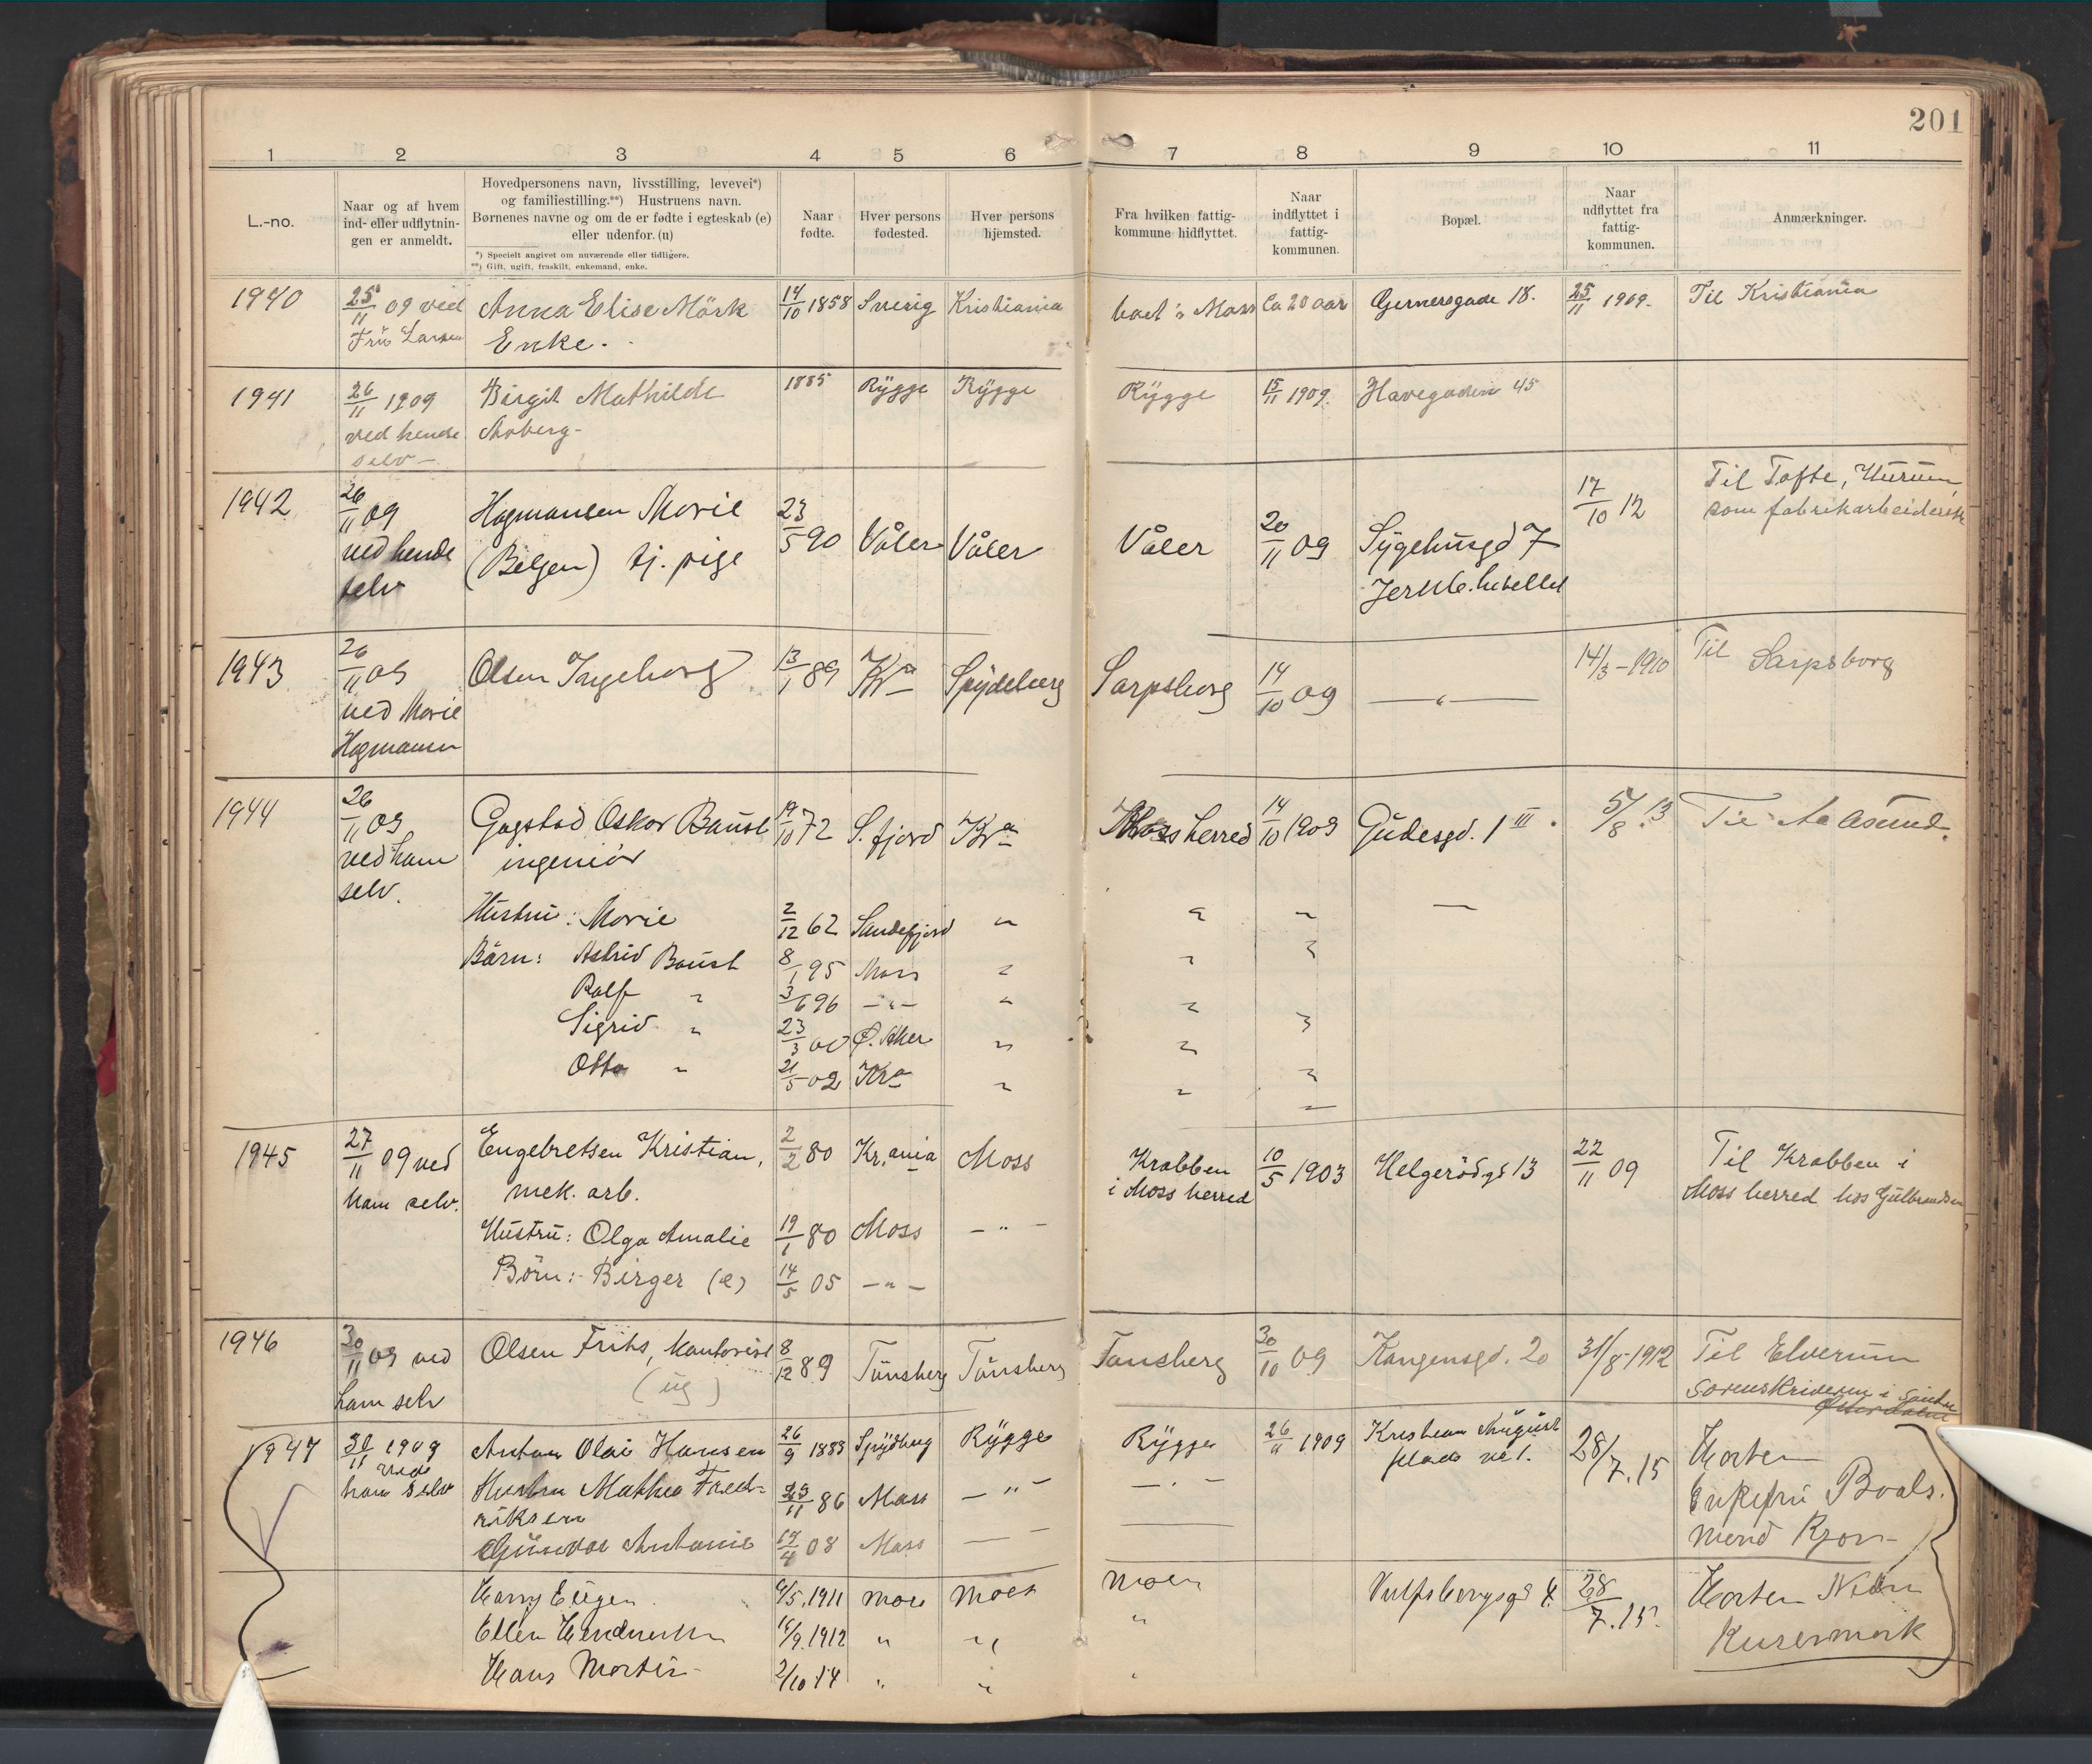 201
1 2 3 4 5 6 7 8 9 10 11
L.-no.
Naar og af hvem
ind- eller udflytnin-
gen er anmeldt.
Hovedpersonens navn, livsstilling, levevei*)
og familiestilling.**) Hustruens navn.
Børnenes navne og om de er fødte i egteskab (e)
eller udenfor. (u)
*) Specielt angivet om nuværende eller tidligere.
**) Gift, ugift, fraskilt, enkemand, enke.
Naar
fødte.
Hver persons
fødested.
Hver persons
hjemsted.
Fra hvilken fattig-
kommune hidflyttet.
Naar
indflyttet i
fattig-
kommunen.
Bopæl.
Naar
udflyttet fra
fattig-
kommunen.
Anmærkninger.
1940 25/11 09 ved Anna Elise Mörk 14/10 1858 Sverig Kristiania boet i Moss Ca 20 aar Gernersgade 18. 25/11 1909. Til Kristiania
Fru Larsen Enke.
1941 26/11 1909 Birgit Mathilde 1885 Rygge Rygge Rygge 15/11 1909. Havegaden 45
ved hende
selv
1942 26/11 09 Hagmansen Marie 23/5 90 Våler Våler Våler 20/11 09 Sygehusgd 7 17/10 12 Til Tofte, Hurum
ved hende (Bilgen) tj. pige som fabrikarbeiderske
selv
1943 26/11 09 Olsen Ingeborg 13/1 89 Kra Spydeberg Sarpsborg 14/10 09 — " — 14/3 - 1910 Til Sarpsborg
ved Marie
1944 26/11 09 Gagstad Oskar Baust 19/10 72 S. fjord Kra Moss herred 14/10 1909 Gudesgd. 1 III. 5/8 13 Til Aalesund.
ved ham ingeniör
selv.
Hustru: Marie 2/12 62 Sandefjord "
Börn: Astrid Baust 8/1 95 Moss "
Ralf " 3/6 96 — " — "
Sigrid " 23/3 00 Ø. Aker "
Otto " 21/5 02 Kra "
1945 27/11 09 ved Engebretsen Kristian, 2/2 80 Kr.ania Moss Krabben 10/5 1903 Helgerödgd 13 22/11 09 Til Krabben i
ham selv. mek. arb. i Moss herred Moss herred hos Gulbrandsen
Hustru: Olga Amalie 19/1 80 Moss — " —
Börn: Birger (e) 14/5 05 — " —
1946 30/11 09 ved Olsen Frits, kontorist 8/12 89 Tönsberg Tönsberg Tönsberg 30/10 09 Kongensgd. 20 31/8 - 1912 Til Elverum
ham selv (ug) Sorenskriveren i Söndre
Østerdalen
1947 30/11 1909 Anton Olai Hansen 26/9 1883 Spydberg Rygge Rygge 26/11 1909 Kristian August 28/7. 15 Horten
ved ham selv Hustru Mathea Fred- 23/11 86 Moss — " — plads no 1. Enkefru
riksen
Gunvor Antonie 17/4 08 Moss —
Harry Eugen 4/5. 1911 Moss Moss Moss Vulfsbergsgd 4. 28/7. 15. Horten
Ellen 16/9. 1912 " " "
Hans Martin 2/10 14 " " "